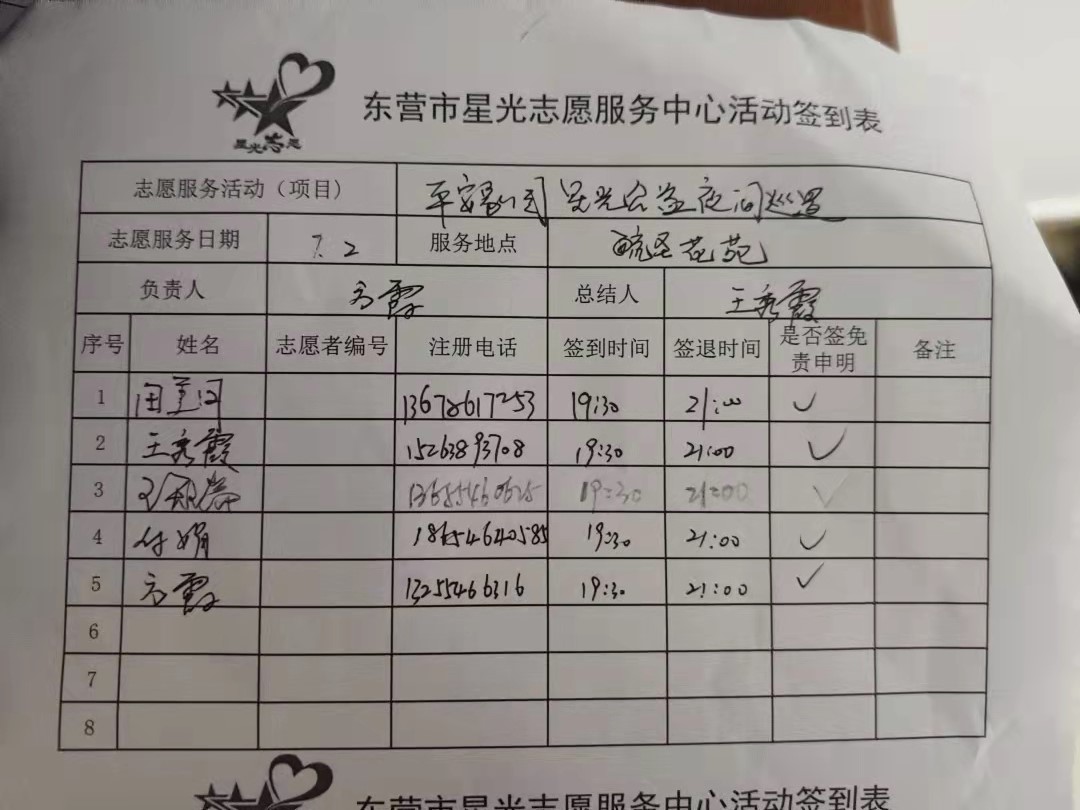 星光志愿
东营市星光志愿服务中心活动签到表
志愿服务活动（项目） 平安 星光公益夜间巡逻
志愿服务日期 7.2 服务地点 花苑
负责人 方霞 总结人 王秀霞
序号 姓名 志愿者编号 注册电话 签到时间 签退时间 是否签免责申明 备注
1 13678617253 19:30 21:00 ✓
2 王秀霞 15263893708 19:30 21:00 ✓
3 13655460625 19:30 21:00 ✓
4 付娟 18654640585 19:30 21:00 ✓
5 方霞 13255466316 19:30 21:00 ✓
6
7
8
东营市星光志愿服务中心活动签到表